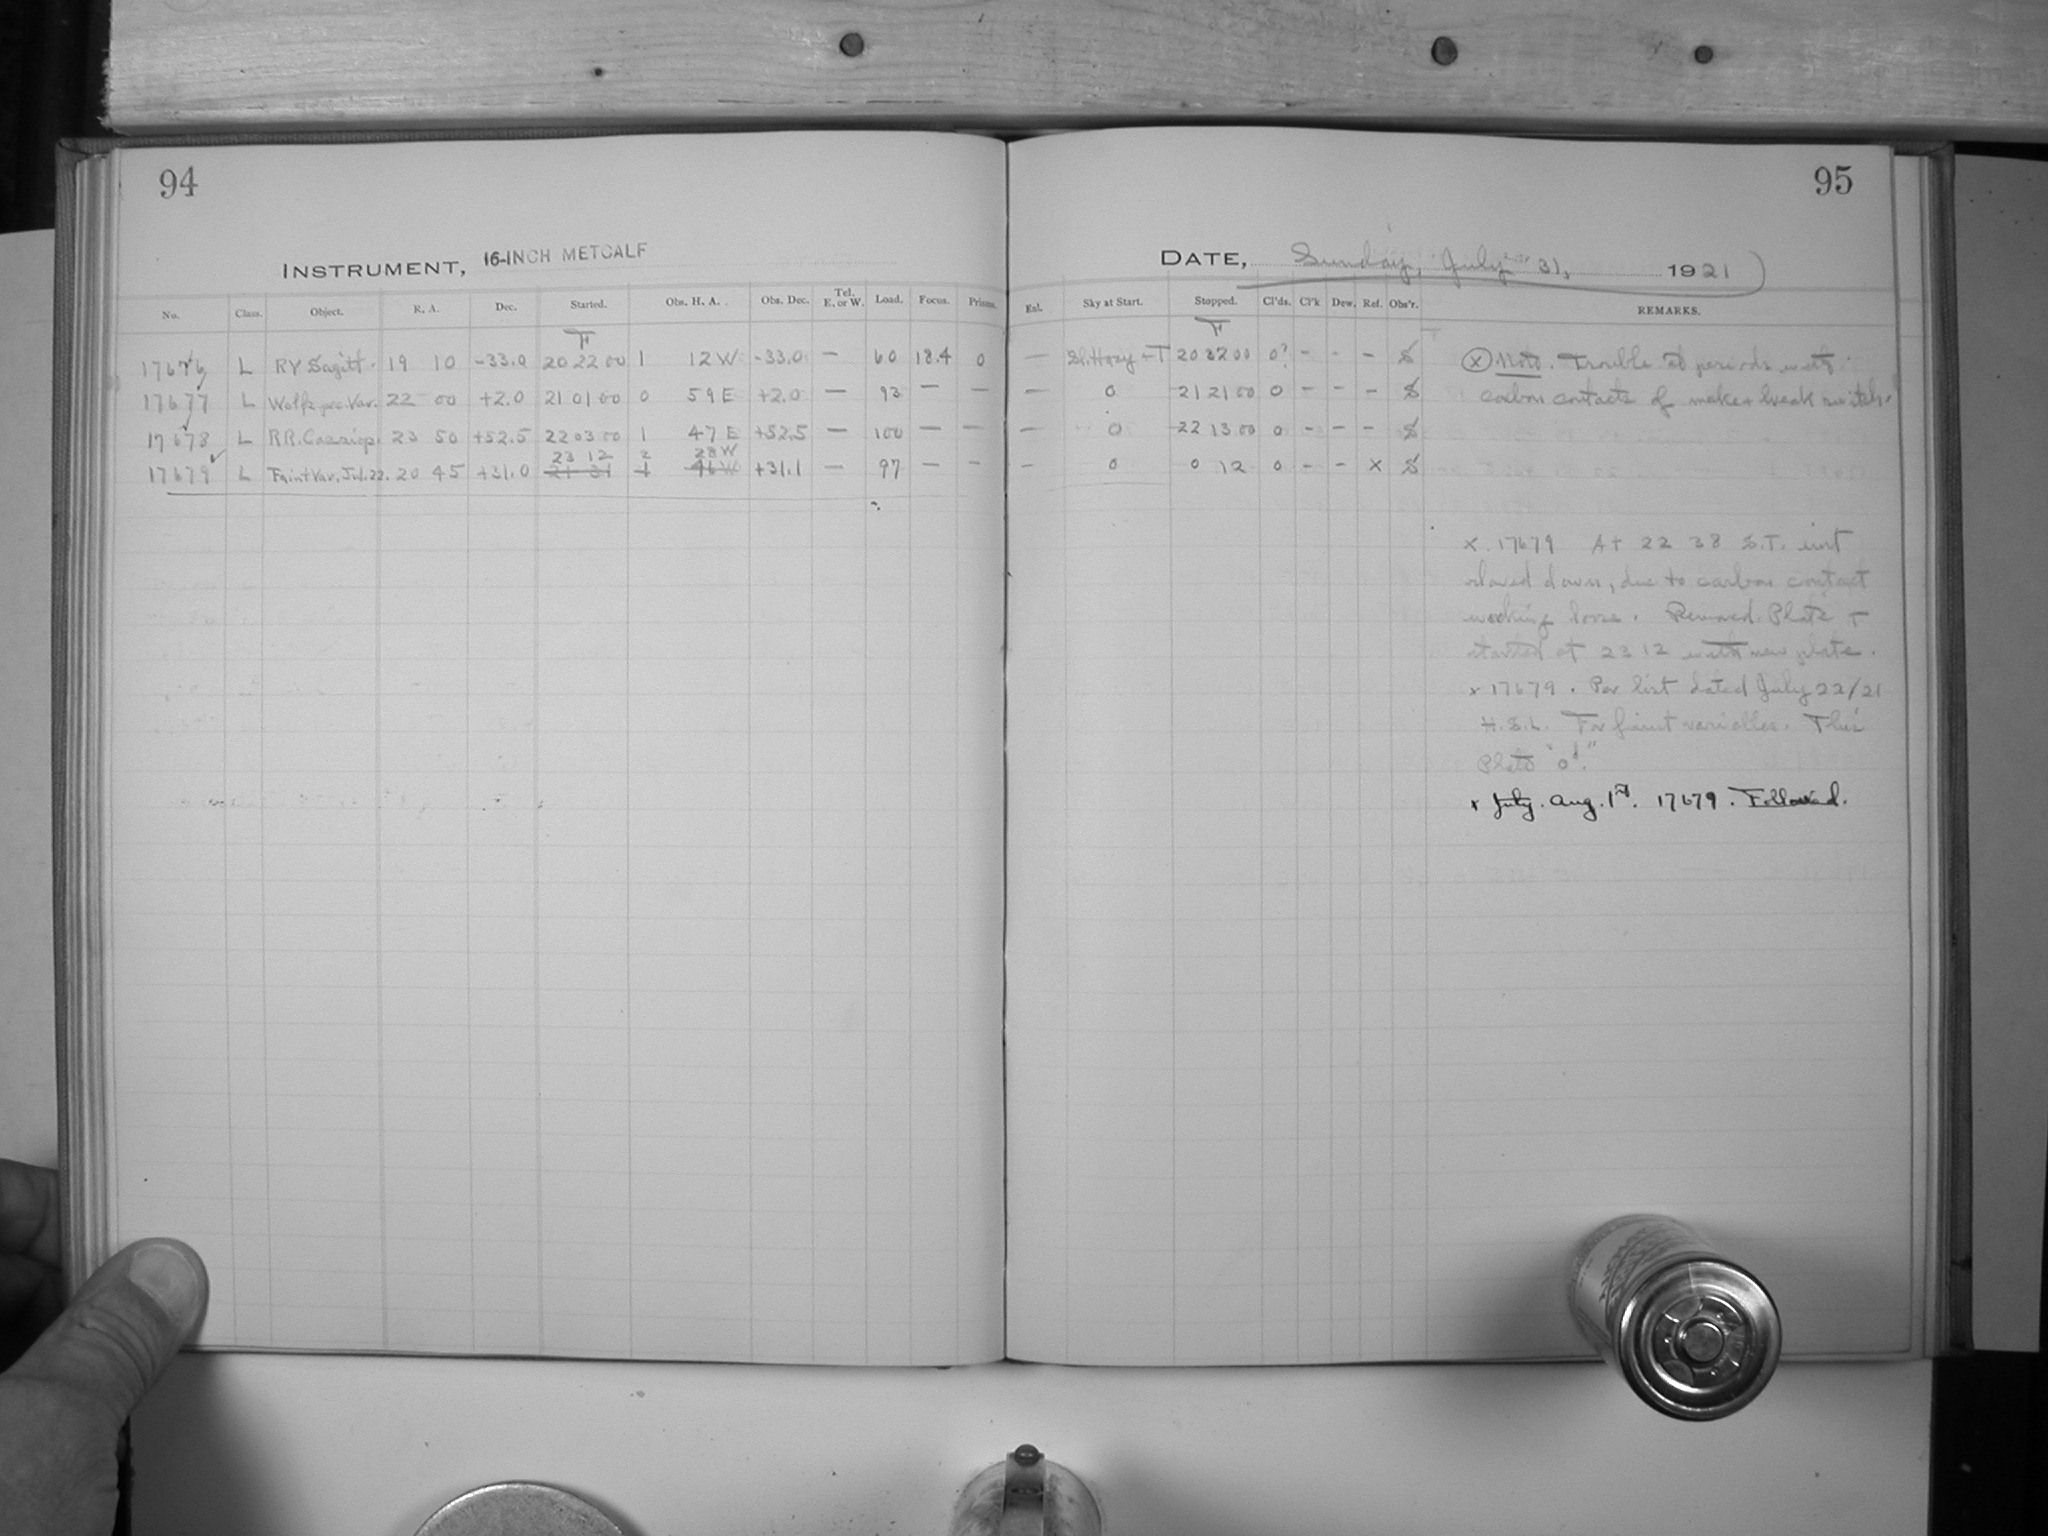 94
95
INSTRUMENT, 16-INCH METCALF
DATE, Sunday, July 31, 1921
No. Class. Object. R. A. Dec. Started. Obs. H. A. Obs. Dec. Tel. E. or W. Load. Focus. Prisms. Exl. Sky at Start. Stopped. Cl'ds. Cl'k Dew. Ref. Obs'r. REMARKS.
F F
17676 L RY Sagitt. 19 10 -33.0 20 22 00 1 12 W -33.0 — 60 18.4 0 — Sl. Hazy + T 20 32 00 0? - - - S
17677 L Wolf's Var. 22 00 +2.0 21 01 00 0 59 E +2.0 — 93 — — — 0 21 21 00 0 - - - S
17678 L RR. Cassiop. 23 50 +52.5 22 03 00 1 47 E +52.5 — 100 — — — 0 22 13 00 0 - - - S
23 12 2 28 W
17679 L Faint Var. Jul. 22. 20 45 +31.0 21 31 1 46 W +31.1 — 97 — — — 0 0 12 0 - - x S
x Note. Trouble at periods with
carbon contacts of make + break switch.
x. 17679 At 22 38 S.T. inst
slowed down, due to carbon contact
working loose. Removed Plate +
started at 23 12 with new plate.
x 17679. Per list dated July 22/21
H.S.L. For faint variables. This
Plate "
x July. Aug. 1st. 17679. Followed.